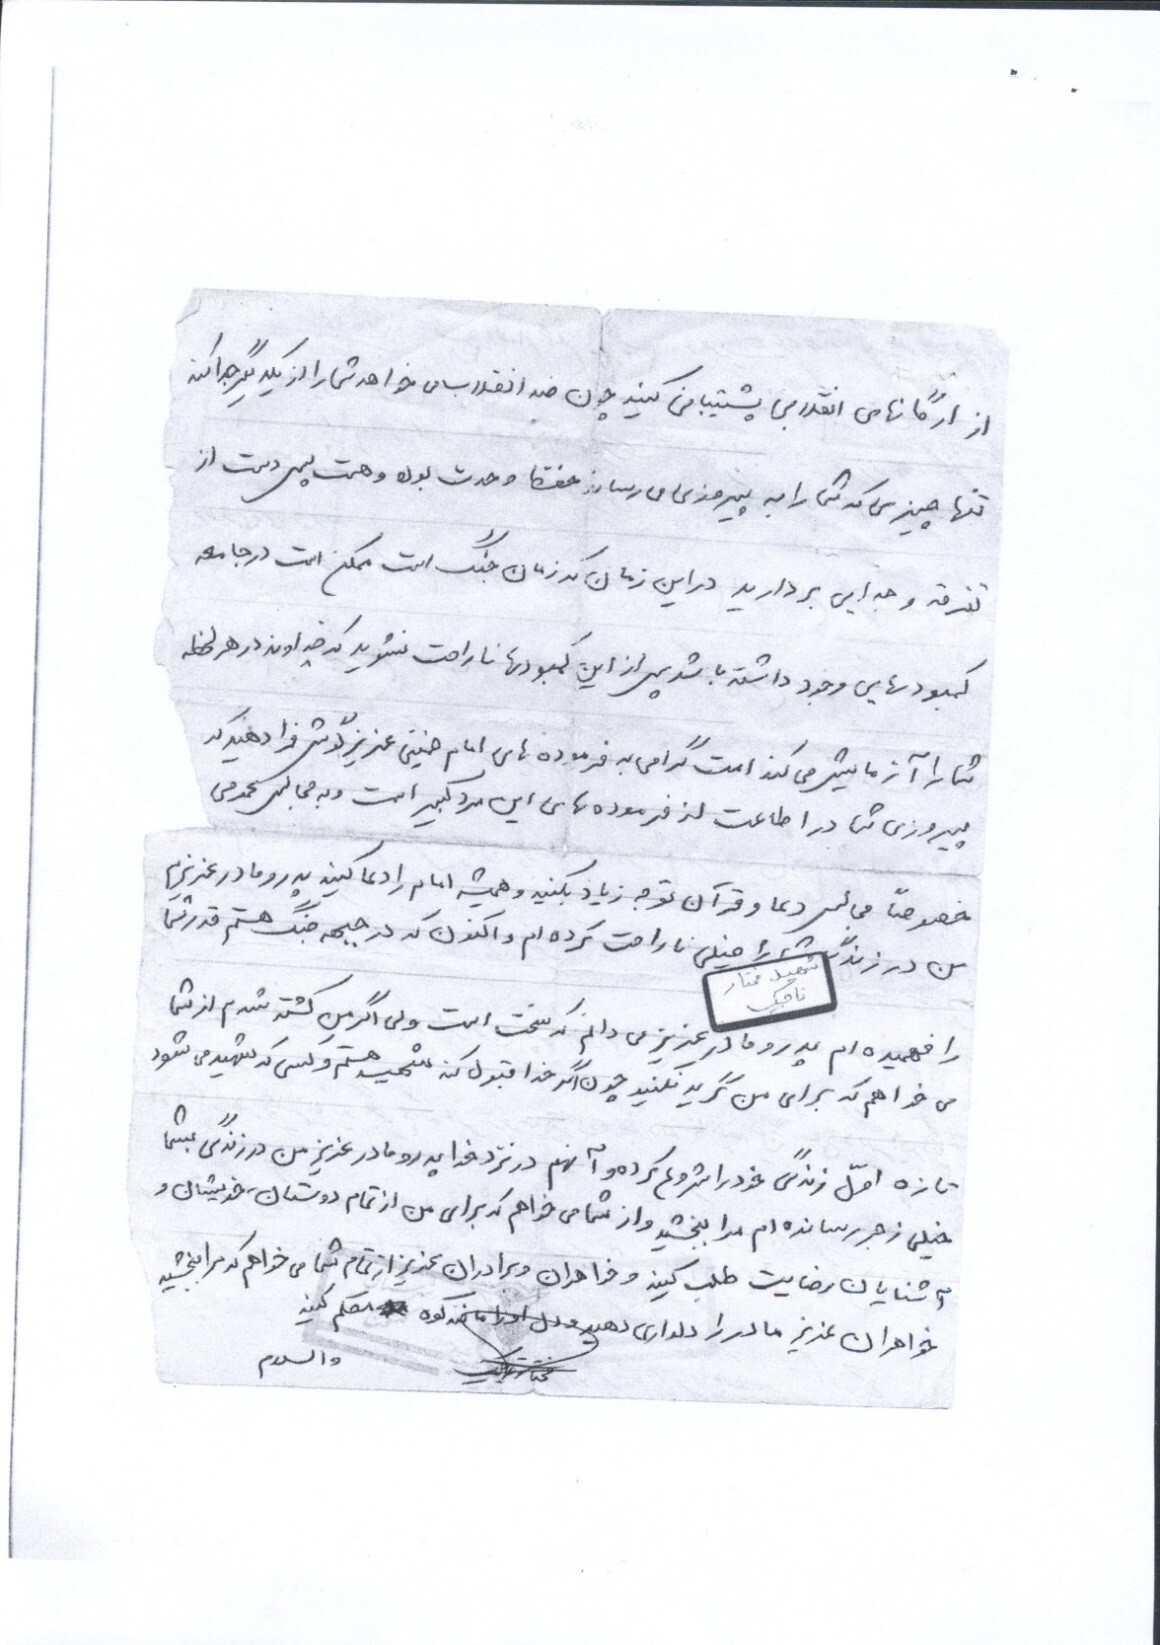 از ارگانهای انقلابی پشتیبانی کنید چون ضد انقلاب می خواهد شما را از یکدیگر جدا کند
تنها چیزی که شما را به پیروزی می رساند وحدت بوده و هست پس دست از
تفرقه و جدایی بردارید در این زمان که زمان جنگ است ممکن است در جامعه
کمبودهایی وجود داشته باشد پس از این کمبودها ناراحت نشوید که خداوند در هر لحظه
شما را آزمایش می کند امت گرامی به فرموده های امام خمینی عزیز گوش فرا دهید که
پیروزی شما در اطاعت از فرموده های این مرد کبیر است و به مجالس
خصوصاً مجالس دعا و قرآن توجه زیاد بکنید و همیشه امام را دعا کنید پدر و مادر عزیزم
من در زندگی شما را خیلی ناراحت کرده ام و اکنون که در جبهه جنگ هستم قدر شما
شهید مختار
تاجیک
را فهمیده ام پدر و مادر عزیز می دانم که سخت است ولی اگر من کشته شدم از شما
می خواهم که برای من گریه نکنید چون اگر خدا قبول کند شهید هستم و کسی که شهید می شود
تازه اوّل زندگی خود را شروع کرده و آنهم در نزد خدا پدر و مادر عزیز من در زندگی بشما
خیلی زجر رسانده ام مرا ببخشید و از شما می خواهم که برای من از تمام دوستان، خویشان و
آشنایان رضایت طلب کنید و خواهران و برادران عزیز از تمام شما می خواهم که مرا ببخشید
خواهران عزیز مادر را دلداری دهید و دل او را مانند کوه محکم کنید
والسلام